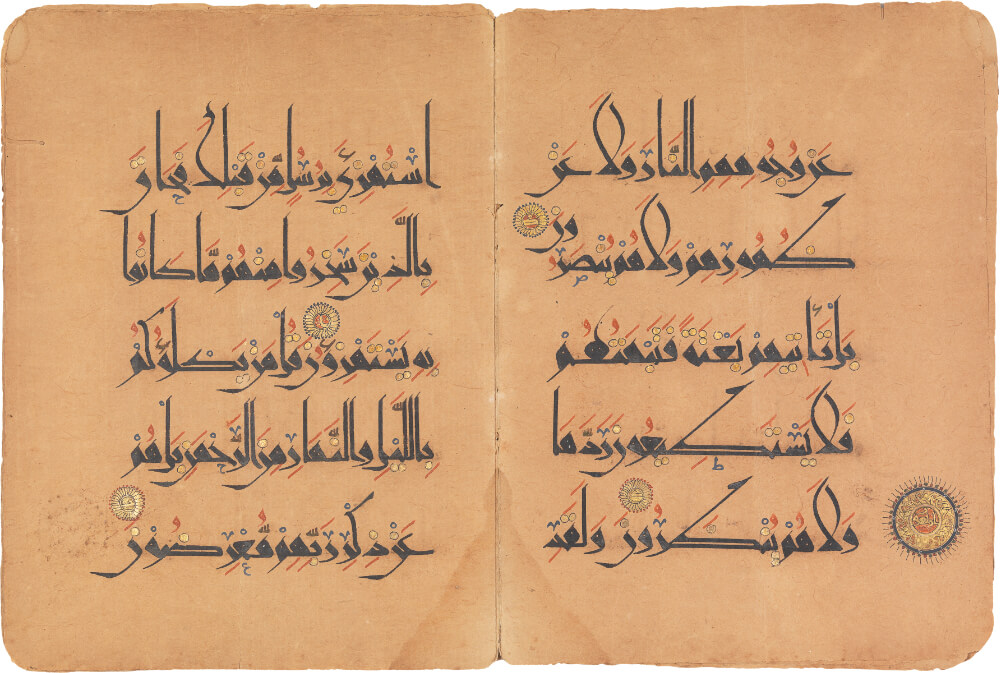 عَن وُجُوهِهِمُ النَّارَ وَلَا عَن
ظُهُورِهِمْ وَلَا هُمْ يُنصَرُونَ
بَلْ تَأْتِيهِم بَغْتَةً فَتَبْهَتُهُمْ
فَلَا يَسْتَطِيعُونَ رَدَّهَا
وَلَا هُمْ يُنظَرُونَ وَلَقَدِ
اسْتُهْزِئَ بِرُسُلٍ مِّن قَبْلِكَ فَحَاقَ
بِالَّذِينَ سَخِرُوا مِنْهُم مَّا كَانُوا
بِهِ يَسْتَهْزِئُونَ قُلْ مَن يَكْلَؤُكُم
بِاللَّيْلِ وَالنَّهَارِ مِنَ الرَّحْمَنِ بَلْ هُمْ
عَن ذِكْرِ رَبِّهِم مُّعْرِضُونَ